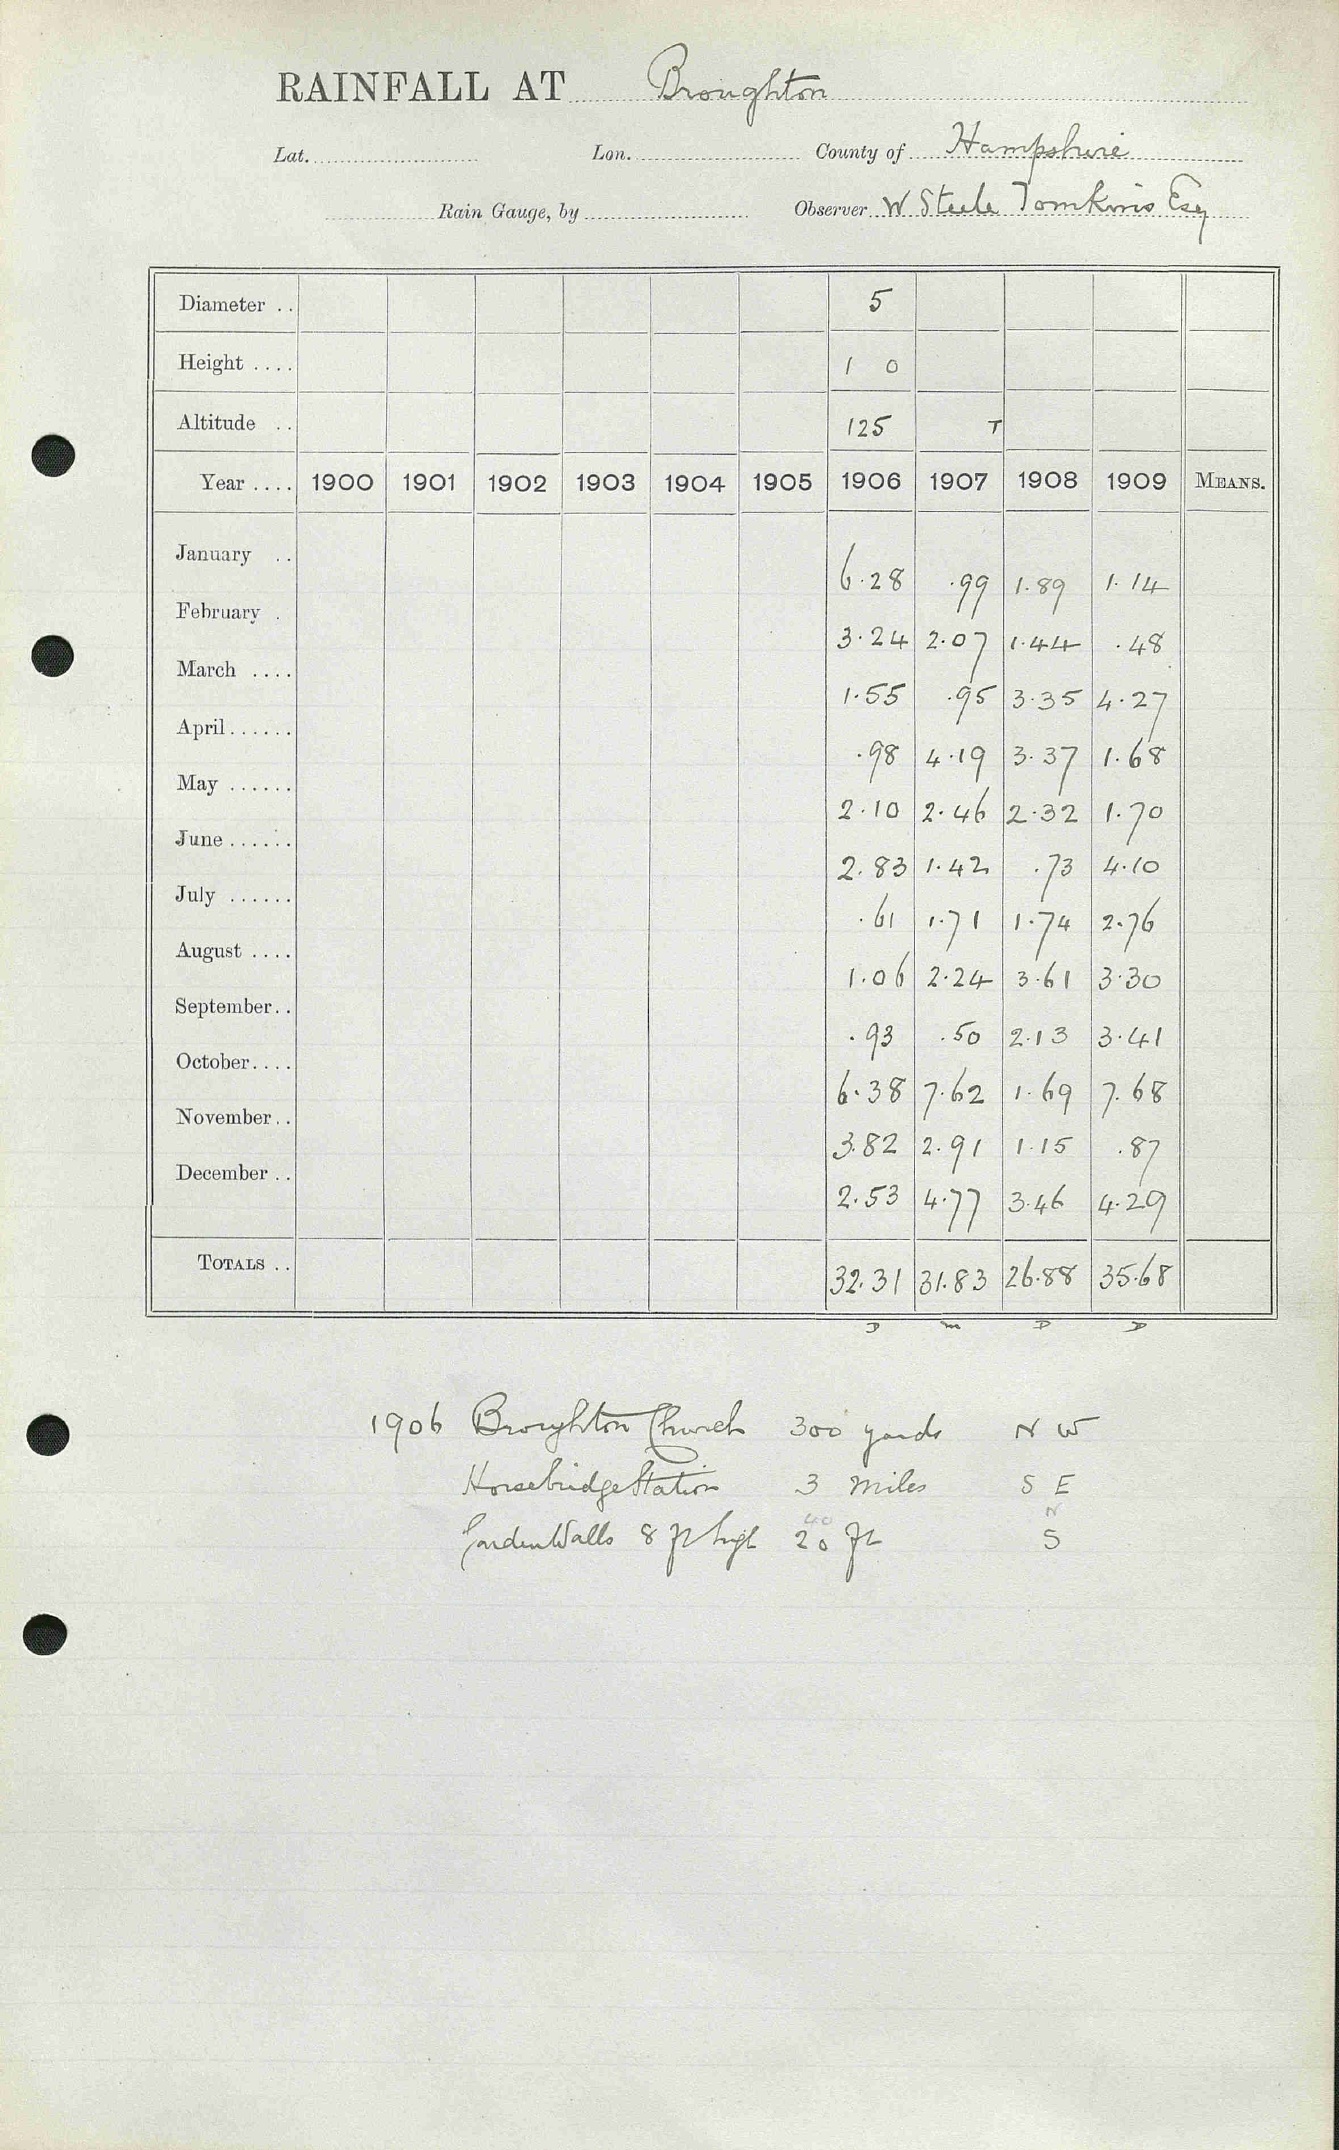 RAINFALL AT Broughton
Lat. Lon. County of Hampshire
Rain Gauge, by Observer W Steele Tomkins Esq
Diameter .. 5
Height .... 1 0
Altitude .. 125 T
Year .... 1900 1901 1902 1903 1904 1905 1906 1907 1908 1909 MEANS.
January .. 6.28 .99 1.89 1.14
February . 3.24 2.07 1.44 .48
March .... 1.55 .95 3.35 4.27
April...... .98 4.19 3.37 1.68
May ...... 2.10 2.46 2.32 1.70
June...... 2.83 1.42 .73 4.10
July ...... .61 1.71 1.74 2.76
August .... 1.06 2.24 3.61 3.30
September.. .93 .50 2.13 3.41
October.... 6.38 7.62 1.69 7.68
November.. 3.82 2.91 1.15 .87
December .. 2.53 4.77 3.46 4.29
TOTALS .. 32.31 31.83 26.88 35.68
D m D D
1906 Broughton Church 300 yards N W
Horsebridge Station 3 miles S E
40 N
Garden Walls 8 ft high 20 ft S